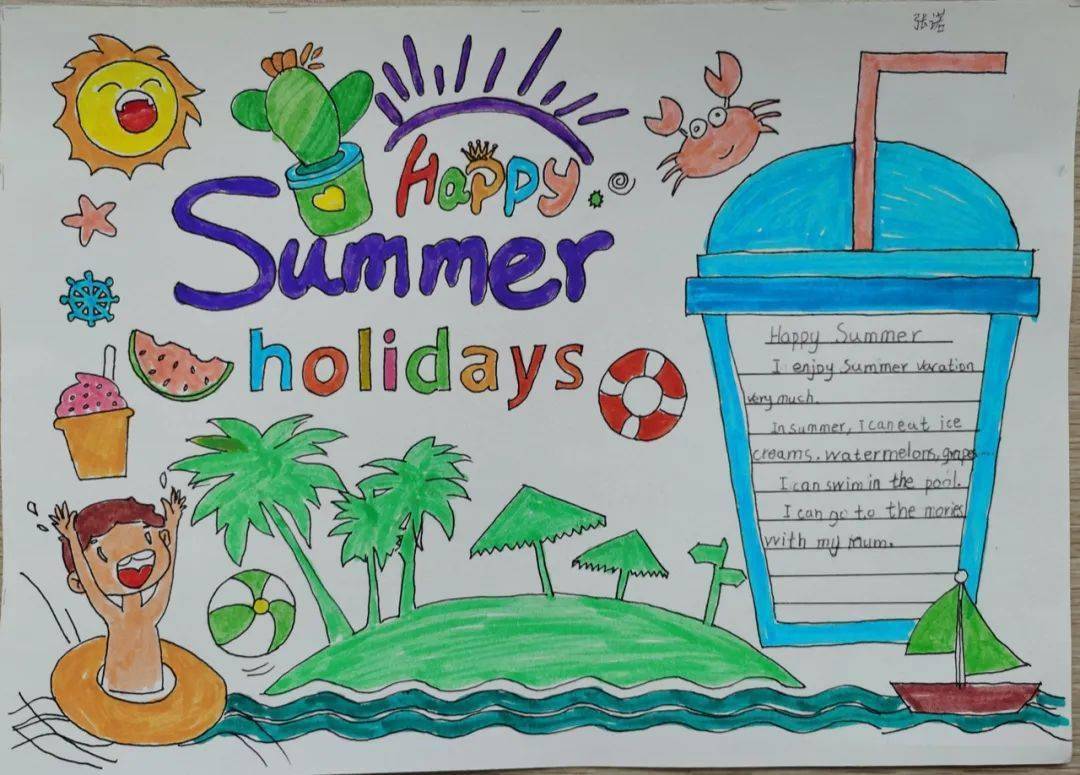 张诺
Happy
Summer
holidays
Happy Summer
I enjoy Summer vacation
very much.
In summer, I can eat ice
creams. watermelons, grapes...
I can swim in the pool.
I can go to the movies
with my mum.